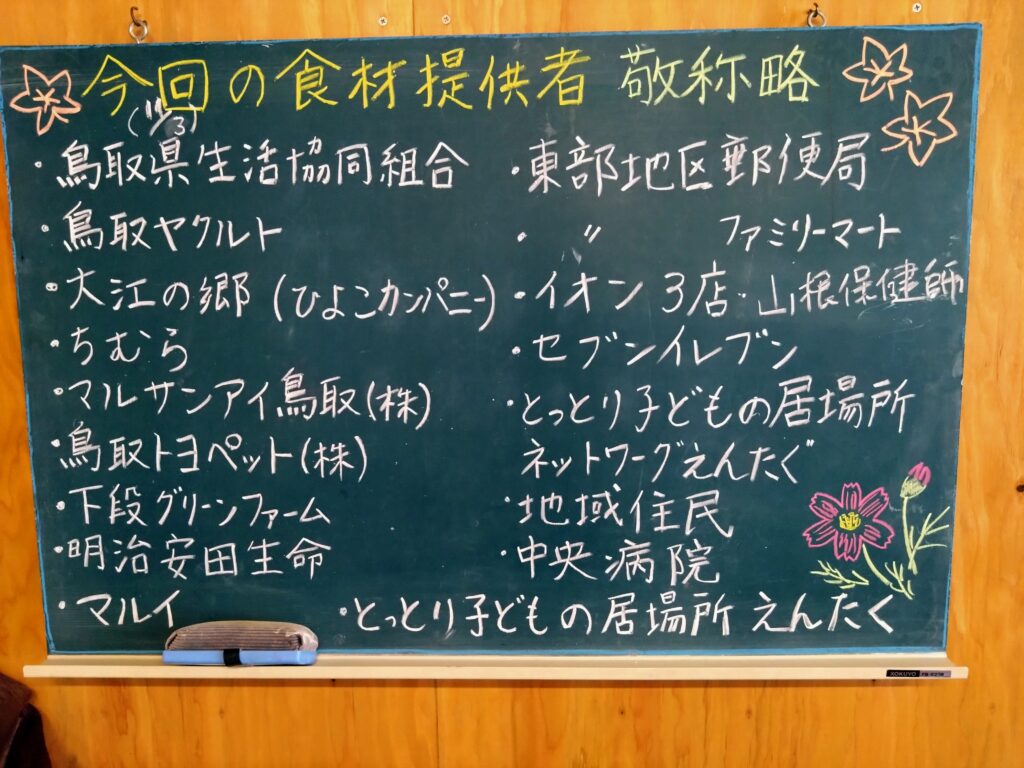 今回の食材提供者 敬称略
(11/3)
・鳥取県生活協同組合
・鳥取ヤクルト
・大江の郷(ひよこカンパニー)
・ちむら
・マルサンアイ鳥取(株)
・鳥取トヨペット(株)
・下段グリーンファーム
・明治安田生命
・マルイ
・東部地区郵便局
・ 〃 ファミリーマート
・イオン3店・山根保健師
・セブンイレブン
・とっとり子どもの居場所
ネットワークえんたく
・地域住民
・中央病院
・とっとり子どもの居場所 えんたく
KOKUYO